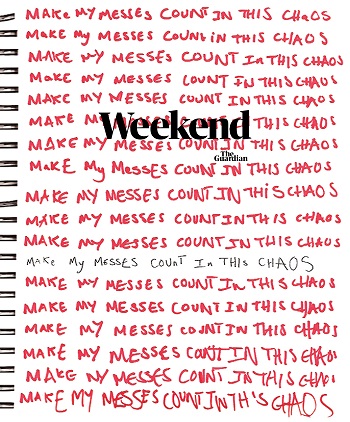 MAKE MY MESSES COUNT IN THIS CHaOS
MaKe MY MESSES COUNT iN THIS CHAOS
MAKE MY MESSES COUNT In THIS CHAOS
MaKE MY MESSES COUNT IN THIS CHAOS
MAKE MY MESSES COUNT IN THIS CHAOS
MAKE MY MESSES COUNT IN THIS CHAOS
Weekend
MAKE MY MESSES COUNT IN THIS CHAOS
The
Guardian
MaKE My MESSES COUNT IN THIS CHAOS
MAKE MY MESSES COUNT IN THIS CHAOS
MAKE MY MESSES COUNT IN THIS CHAOS
MAKE MY MESSES COUNT IN THIS CHAOS
MAKE My MESSES COUNT In THIS CHAOS
MAKE MY MESSES COUNT IN THIS CHAOS
MAKE MY MESSES COUNT IN THIS CHAOS
MAKE MY MESSES COUNT IN THIS CHAOS
MAKE MY MESSES COUNT IN THIS CHAOS
MAKE MY MESSES COUNT IN THIS CHAOS
MAKE MY MESSES COUNT IN THIS CHAOS